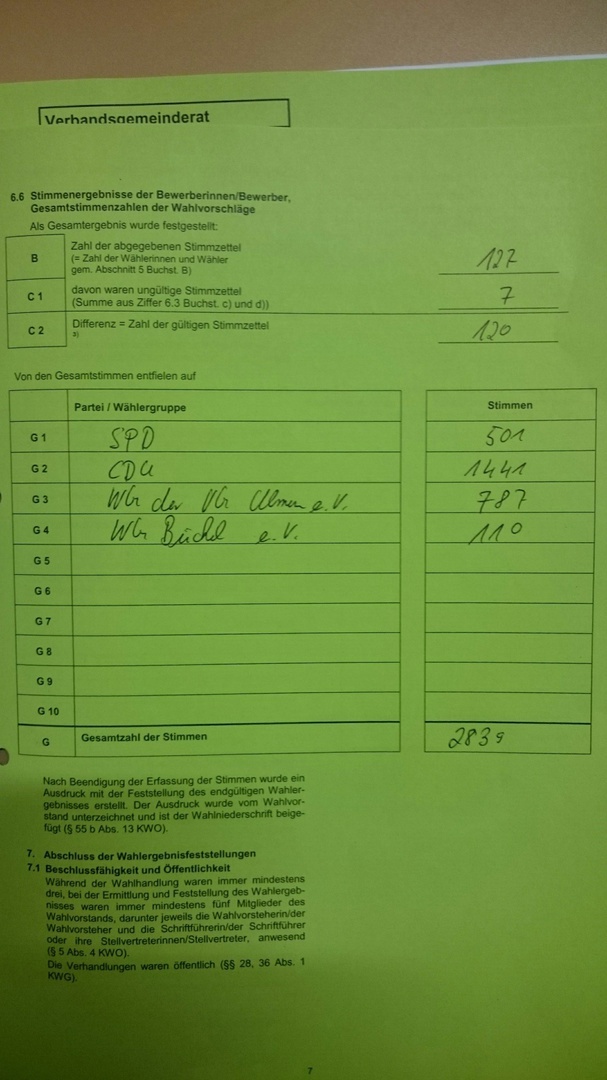 Verbandsgemeinderat
6.6 Stimmenergebnisse der Bewerberinnen/Bewerber,
Gesamtstimmenzahlen der Wahlvorschläge
Als Gesamtergebnis wurde festgestellt:
B Zahl der abgegebenen Stimmzettel
(= Zahl der Wählerinnen und Wähler
gem. Abschnitt 5 Buchst. B) 127
C 1 davon waren ungültige Stimmzettel
(Summe aus Ziffer 6.3 Buchst. c) und d)) 7
C 2 Differenz = Zahl der gültigen Stimmzettel 120
Von den Gesamtstimmen entfielen auf
Partei / Wählergruppe Stimmen
G 1 SPD 501
G 2 CDU 1441
G 3 WG der VG Ulmen e.V. 787
G 4 WG Büchel e.V. 110
G 5
G 6
G 7
G 8
G 9
G 10
G Gesamtzahl der Stimmen 2839
Nach Beendigung der Erfassung der Stimmen wurde ein
Ausdruck mit der Feststellung des endgültigen Wahler-
gebnisses erstellt. Der Ausdruck wurde vom Wahlvor-
stand unterzeichnet und ist der Wahlniederschrift beige-
fügt (§ 55 b Abs. 13 KWO).
7. Abschluss der Wahlergebnisfeststellungen
7.1 Beschlussfähigkeit und Öffentlichkeit
Während der Wahlhandlung waren immer mindestens
drei, bei der Ermittlung und Feststellung des Wahlergeb-
nisses waren immer mindestens fünf Mitglieder des
Wahlvorstands, darunter jeweils die Wahlvorsteherin/der
Wahlvorsteher und die Schriftführerin/der Schriftführer
oder ihre Stellvertreterinnen/Stellvertreter, anwesend
(§ 5 Abs. 4 KWO).
Die Verhandlungen waren öffentlich (§§ 28, 36 Abs. 1
KWG).
7